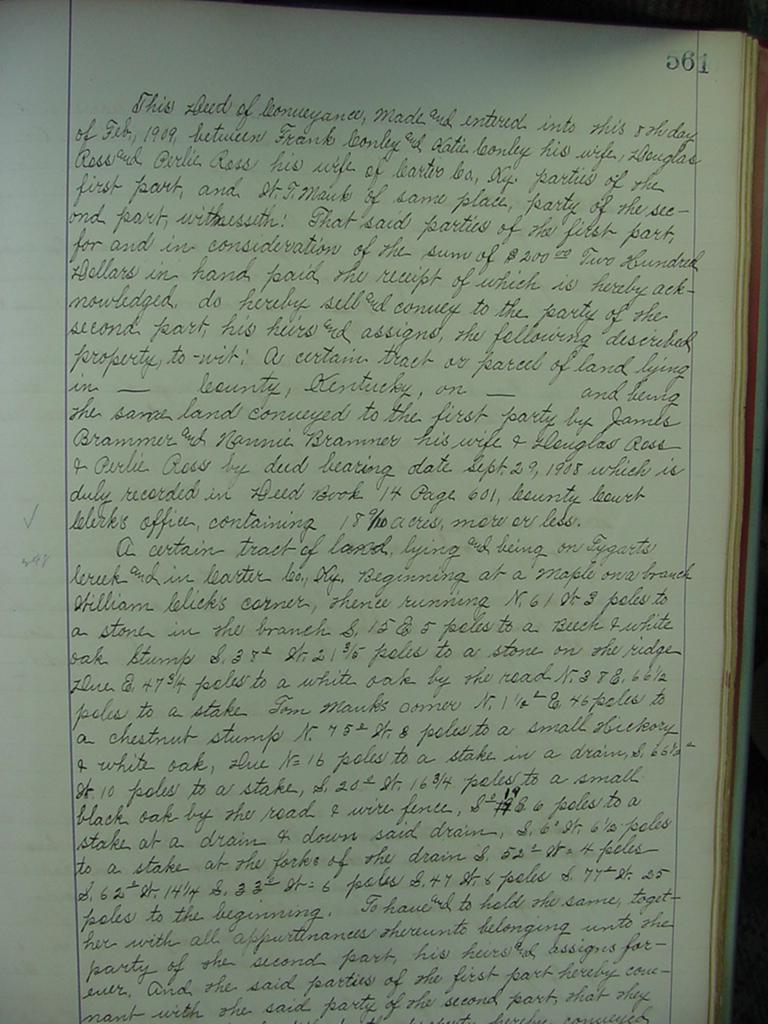 561
This Deed of Conveyance, Made and entered into this 8th day
of Feb, 1909, between Frank Conley and Katie Conley his wife, Douglas
Ross and Perlie Ross his wife of Carter Co, Ky. parties of the
first part, and W. T. Mauk of same place, party of the sec-
ond part, witnesseth: That said parties of the first part,
for and in consideration of the sum of $200 00 Two Hundred
Dollars in hand paid the receipt of which is hereby ack-
nowledged, do hereby sell and convey to the party of the
second part, his heirs and assigns, the following described
property, to-wit: A certain tract or parcel of land lying
in — County, Kentucky, on — and being
the same land conveyed to the first party by James
Brammer and Nannie Brammer his wife & Douglas Ross
& Perlie Ross by deed bearing date Sept 29, 1908 which is
duly recorded in Deed Book 14 Page 601, County Court
Clerk's office, containing 18 9/10 acres, more or less.
A certain tract of land, lying and being on Tygarts
Creek and in Carter Co, Ky. Beginning at a Maple on a branch
William Click's corner, thence running N. 61 W 3 poles to
a stone in the branch S. 15 E 5 poles to a Beech & white
oak Stump S. 38° W. 21 3/5 poles to a stone on the ridge
Due E. 47 3/4 poles to a white oak by the road N. 38 E. 66 1/2
poles to a stake Tom Mauk's corner N. 1 1/2° E. 46 poles to
a chestnut stump N. 75° W. 8 poles to a small Hickory
& white oak, Due N= 16 poles to a stake in a drain, S. 66 1/2°
W. 10 poles to a stake, S. 20° W. 16 3/4 poles to a small
black oak by the road & wire fence, S° 19 E 6 poles to a
stake at a drain & down said drain, S. 6° W. 6 1/2 poles
to a stake at the forks of the drain S. 52° W= 4 poles
S. 62° W. 14 1/4 S. 33° W= 6 poles S. 47 W. 6 poles S. 77° W. 25
poles to the beginning. To have and to hold the same, toget-
her with all appurtinances thereunto belonging unto the
party of the second part, his heirs and assigns for-
ever. And the said parties of the first part hereby cove-
nant with the said party of the second part, that they
property hereby conveyed